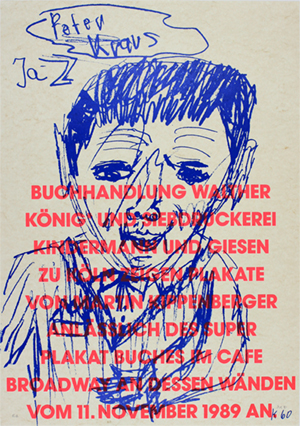 Peter
Kraus
Ja
BUCHHANDLUNG WALTHER
KÖNIG* UND SIEBDRUCKEREI
KINDERMANN UND GIESEN
ZU KÖLN ZEIGEN PLAKATE
VON MARTIN KIPPENBERGER
ANLÄSSLICH DES SUPER
PLAKAT BUCHES IM CAFE
BROADWAY AN DESSEN WÄNDEN
VOM 11. NOVEMBER 1989 AN
60